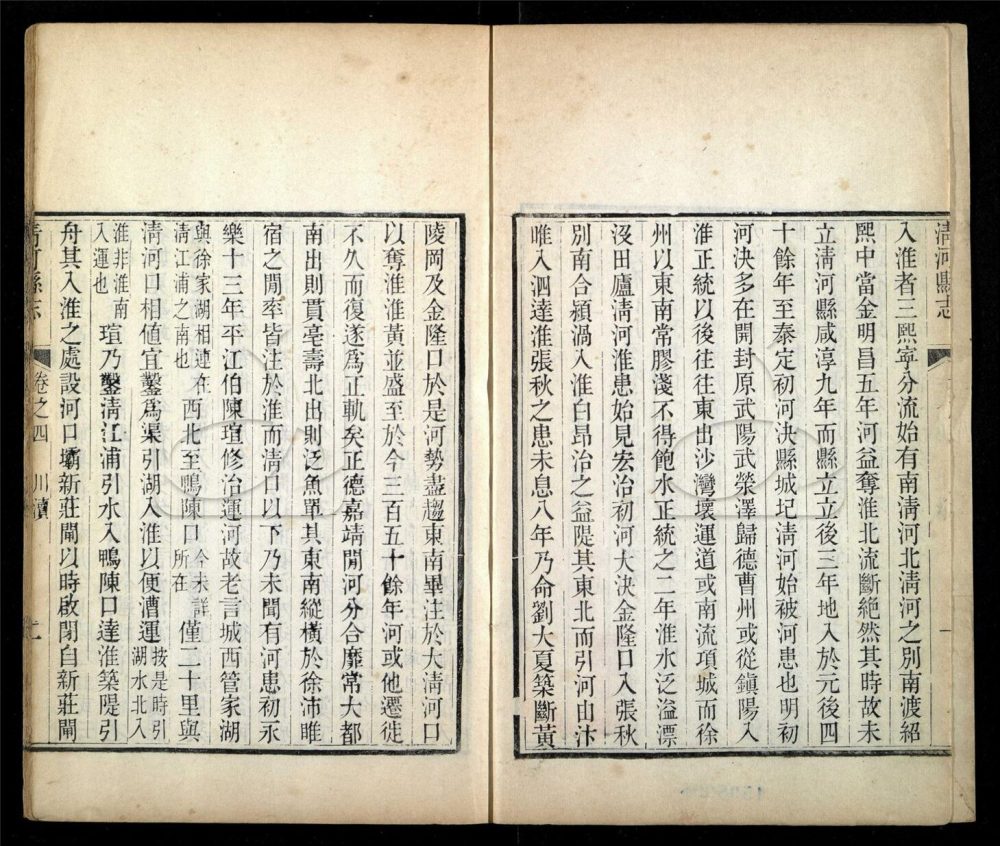 清河縣志
入淮者三熙寧分流始有南淸河北淸河之別南渡紹
熙中當金明昌五年河益奪淮北流斷絕然其時故未
立淸河縣咸淳九年而縣立立後三年地入於元後四
十餘年至泰定初河決縣城圮淸河始被河患也明初
河決多在開封原武陽武滎澤歸德曹州或從鎭陽入
淮正統以後往往東出沙灣壞運道或南流項城而徐
州以東南常膠淺不得飽水正統之二年淮水泛溢漂
沒田廬淸河淮患始見宏治初河大決金隆口入張秋
別南合潁渦入淮白昂治之益隄其東北而引河由汴
唯入泗達淮張秋之患未息八年乃命劉大夏築斷黃
陵岡及金隆口於是河勢盡趨東南畢注於大淸河口
以奪淮淮黃並盛至於今三百五十餘年河或他遷徒
不久而復遂爲正軌矣正德嘉靖閒河分合靡常大都
南出則貫亳壽北出則泛魚單其東南縱橫於徐沛睢
宿之閒率皆注於淮而淸口以下乃未聞有河患初永
樂十三年平江伯陳瑄修治運河故老言城西管家湖
與徐家湖相連在淸江浦之南也西北至鴨陳口今未詳所在僅二十里與
淸河口相値宜鑿爲渠引湖入淮以便漕運按是時引湖水北入
淮非淮南入運也瑄乃鑿淸江浦引水入鴨陳口達淮築隄引
舟其入淮之處設河口壩新莊閘以時啟閉自新莊閘
清河縣志
卷之四 川瀆
二